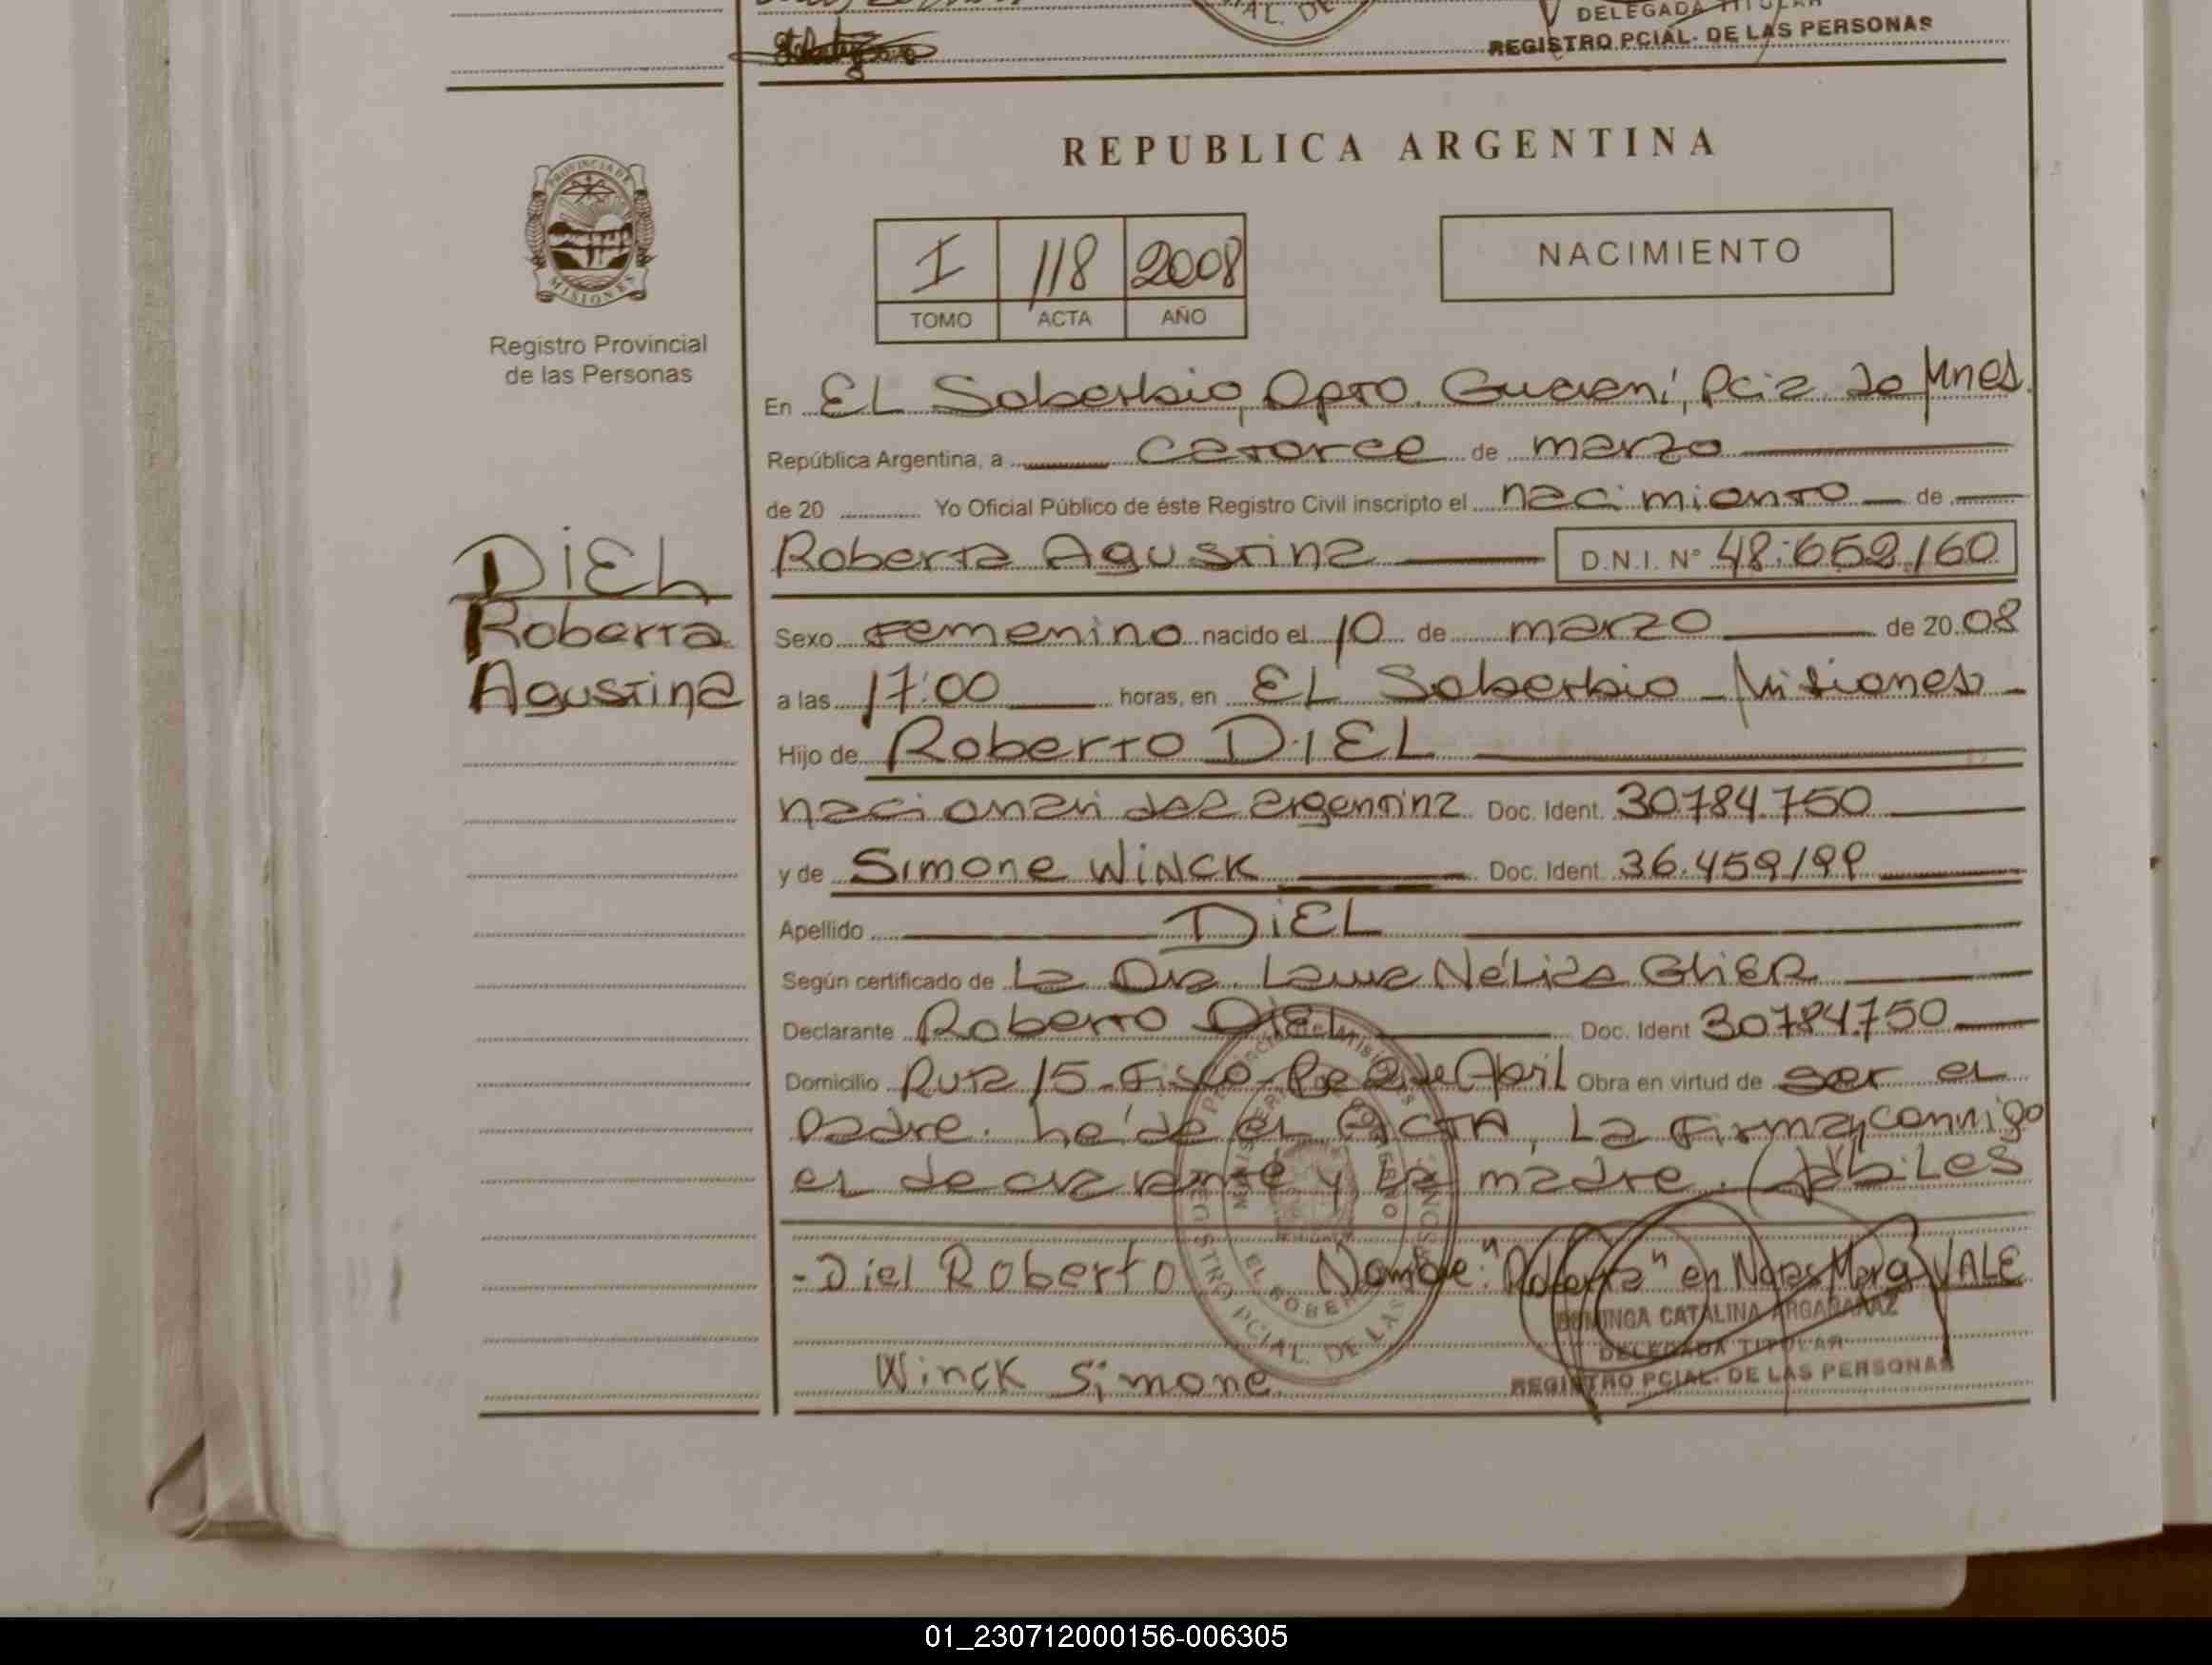 DELEGADA TITULAR
REGISTRO PCIAL. DE LAS PERSONAS
PROVINCIA DE
MISIONES
Registro Provincial
de las Personas
REPUBLICA ARGENTINA
I 118 2008
TOMO ACTA AÑO
NACIMIENTO
En EL Soberbio, Dpto. Guarani, Pcia de Mnes.
República Argentina, a catorce de marzo
de 20 Yo Oficial Público de éste Registro Civil inscripto el nacimiento de
DIEL
Roberta
Agustina
Roberta Agustina D.N.I. N° 48.652.160
Sexo Femenino nacido el 10 de marzo de 20 08
a las 17:00 horas, en EL Soberbio - Misiones
Hijo de Roberto DIEL
nacionalidad argentina Doc. Ident. 30.784.750
y de Simone WINCK Doc. Ident. 36.459.199
Apellido DIEL
Según certificado de La Dra. Laura Nélida
Declarante Roberto DIEL Doc. Ident 30.784.750
Domicilio Ruta 15 de Abril Obra en virtud de ser el
padre. Leída el ACTA, La Firman conmigo
el declarante y la madre. Hábiles
- Diel Roberto Nombre: "Roberta" en VALE
Winck Simone
DOMINGA CATALINA ARGAÑARAZ
DELEGADA TITULAR
REGISTRO PCIAL. DE LAS PERSONAS
01_230712000156-006305